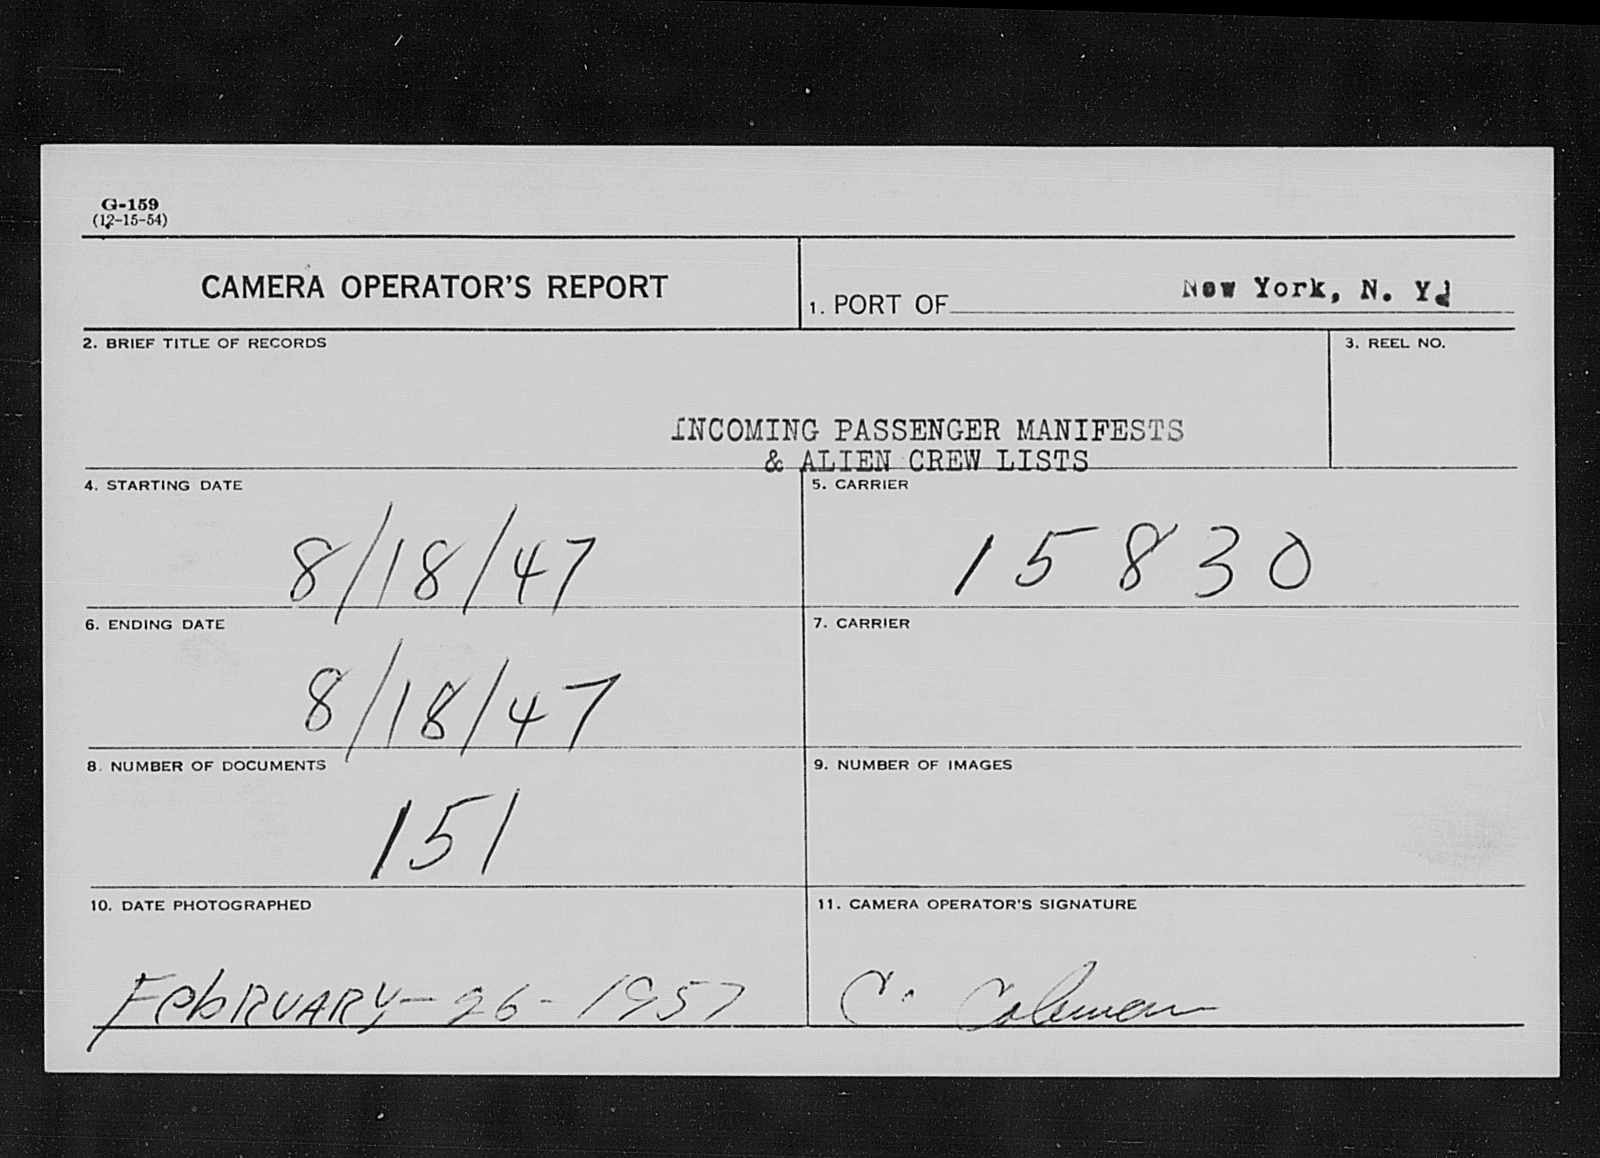 G-159
(12-15-54)
CAMERA OPERATOR'S REPORT
1. PORT OF New York, N. Y.
2. BRIEF TITLE OF RECORDS
3. REEL NO.
INCOMING PASSENGER MANIFESTS
& ALIEN CREW LISTS
4. STARTING DATE
8/18/47
5. CARRIER
15830
6. ENDING DATE
8/18/47
7. CARRIER
8. NUMBER OF DOCUMENTS
151
9. NUMBER OF IMAGES
10. DATE PHOTOGRAPHED
FebRUARY-26-1957
11. CAMERA OPERATOR'S SIGNATURE
C. Coleman